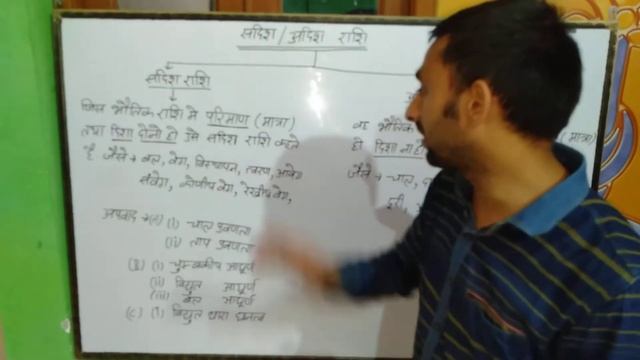 सदिश / अदिश राशि
सदिश राशि
जिस भौतिक राशि मे परिमाण (मात्रा)
तथा दिशा दोनो हो उसे सदिश राशि कहते
है जैसे → बल, वेग, विस्थापन, त्वरण,
संवेग, कोणीय वेग, रेखीय वेग,
अपवाद → (A) (i) चाल प्रवणता
(ii) ताप प्रवणता
(B) (i) चुम्बकीय आघूर्ण
(ii) विद्युत आघूर्ण
(iii) बल आघूर्ण
(C) (i) विद्युत धारा घनत्व
वह भौतिक
(मात्रा)
हो दिशा ना हो
जैसे → चाल,
दूरी,